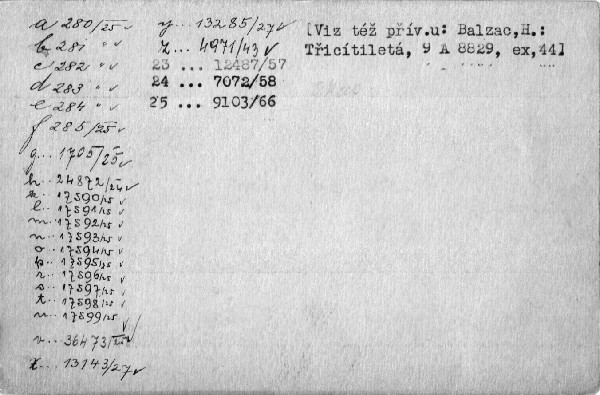 a 280/25 v
b 281 " v
c 282 " v
d 283 " v
e 284 " v
f 285/25 v
g...1705/25 v
h..24872/24 v
k..17590/25 v
l..17591/25 v
m..17592/25 v
n..17593/25 v
o..17594/25 v
p..17595/25 v
r..17596/25 v
s..17597/25 v
t..17598/25 v
u..17599/25 v
v...36473/25 v
x...13143/27 v
y...13285/27 v
z...4971/43 v
23 ... 12487/57
24 ... 7072/58
25 ... 9103/66
[Viz též přív.u: Balzac,H.:
Třicítiletá, 9 A 8829, ex,44]